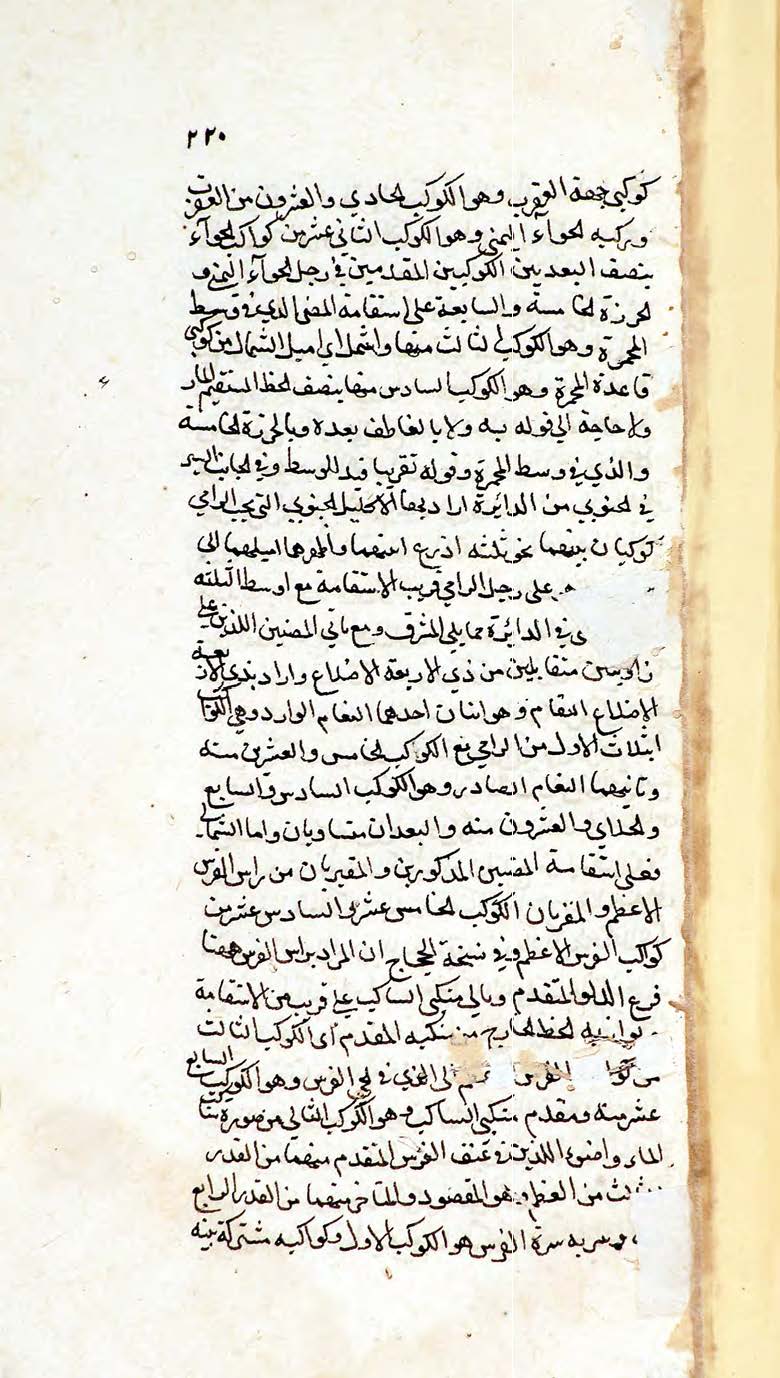 ٢٢٠
كوكبي جبهة العقرب وهو الكوكب الحادي والعشرون من العقرب
وركبه الحواء اليمنى وهو الكوكب الثاني عشر من كواكب الحواء
ينصف البعد بين الكوكبين المقدمين في رجل الحواء اليمنى و
الخرزة الخامسة والسابعة على استقامة المضى الذي في وسط
المجمرة وهو الكوكب الثالث منها واشمل اي اميل الشمال من كوكبي
قاعدة المجمرة وهو الكوكب السادس منها ينصف الخط المستقيم المار
ولا حاجة الى قوله به ولا بالعاطف بعده وبالخرزة الخامسة
والذي في وسط المجمرة وقوله تقريبا قيد للوسط وفي الجانب
في الجنوبي من الدائرة اراد بها الاكليل الجنوبي التي يجب الرامي
كوكبان بينهما نحو ثلثه اذرع اميلهما الى
على رجل الرامي قريب الاستقامة مع اوسط الثلثه
في الدائرة مما يلي المشرق ومع ثاني المضيين اللذين على
زاويتين متقابلتين من ذي الاربعة الاضلاع واراد بذي الاربعة
الاضلاع النعام وهو اثنان احدهما النعام الوارد وهي الكوكب
الثلاث الاول من الرامي مع الكوكب الخامس والعشرين منه
وثانيهما النعام الصادر وهو الكوكب السادس والسابع
والحادي والعشرون منه والبعدان متساويان واما الشمالي
فعلى استقامة المضيين المذكورين والمقيربان من راس الفرس
الاعظم والمقربان الكوكب الخامس عشر والسادس عشر من
كواكب الفرس الاعظم وفي نسخة الحجاج ان المراد براس الفرس ههنا
فرع الدلو المتقدم وبالي منكبي الساكب على قريب من الاستقامة
الخط الخارج من منكبه المقدم اى الكوكب الثالث
من الفرس الى الذي في لحي الفرس وهو الكوكب السابع
عشر منه ومقدم منكبي الساكب وهو الكوكب الثاني من صورة ساكب
الماء واضوء اللذين في عنق الفرس المتقدم منهما من القدر
الثالث من العظم وهو المقصود والمتاخر منهما من القدر الرابع
سرة الفرس هو الكوكب الاول وكواكبه مشتركة بينه